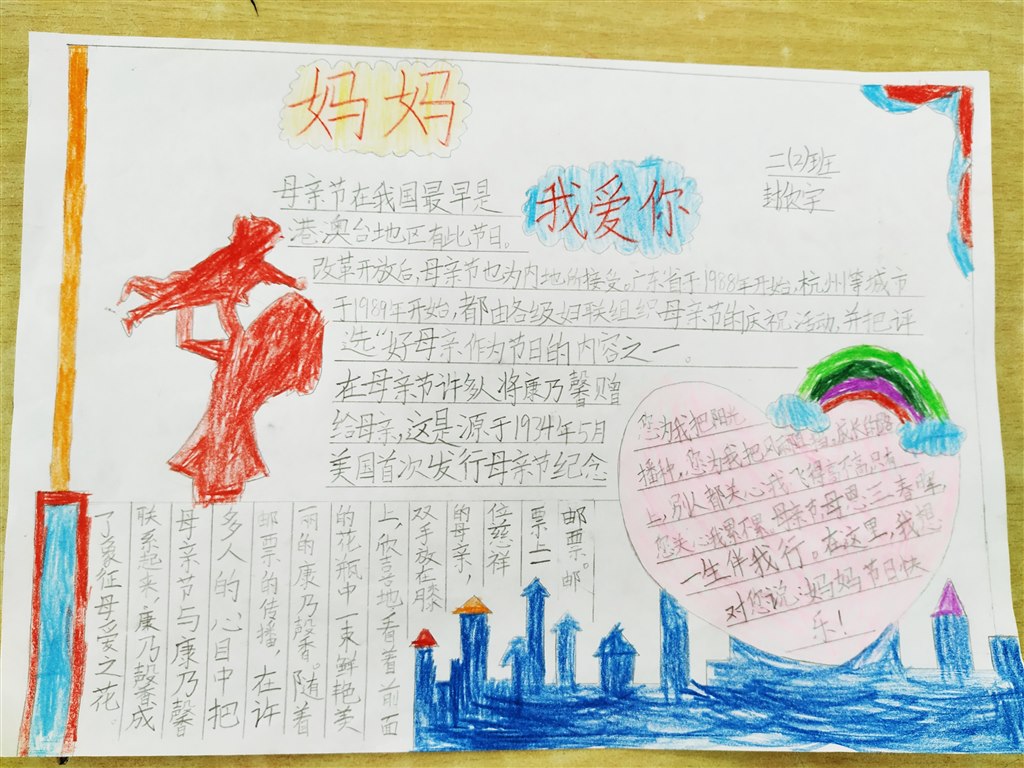 妈妈
我爱你
二(2)班
母亲节在我国最早是
港澳台地区有此节日。
改革开放后,母亲节也为内地所接受。广东省于1988年开始,杭州等城市
于1989年开始,都由各级妇联组织母亲节的庆祝活动,并把评
选“好母亲作为节日的内容之一。
在母亲节许多人将康乃馨赠
给母亲,这是源于1934年5月
美国首次发行母亲节纪念
邮票。邮
票上一
位慈祥
的母亲,
双手放在膝
上,欣喜地看着前面
的花瓶中一束鲜艳美
丽的康乃馨香。随着
邮票的传播,在许
多人的心目中把
母亲节与康乃馨
联系起来,康乃馨春成
了象征母爱之花。
您为我把阳光
播种,您为我把风雨阻挡,成长的路
上,别人都关心我飞得高不高只有
您关心我累不累母亲节母恩三春晖,
一生伴我行。在这里,我想
对您说:妈妈节日快
乐!